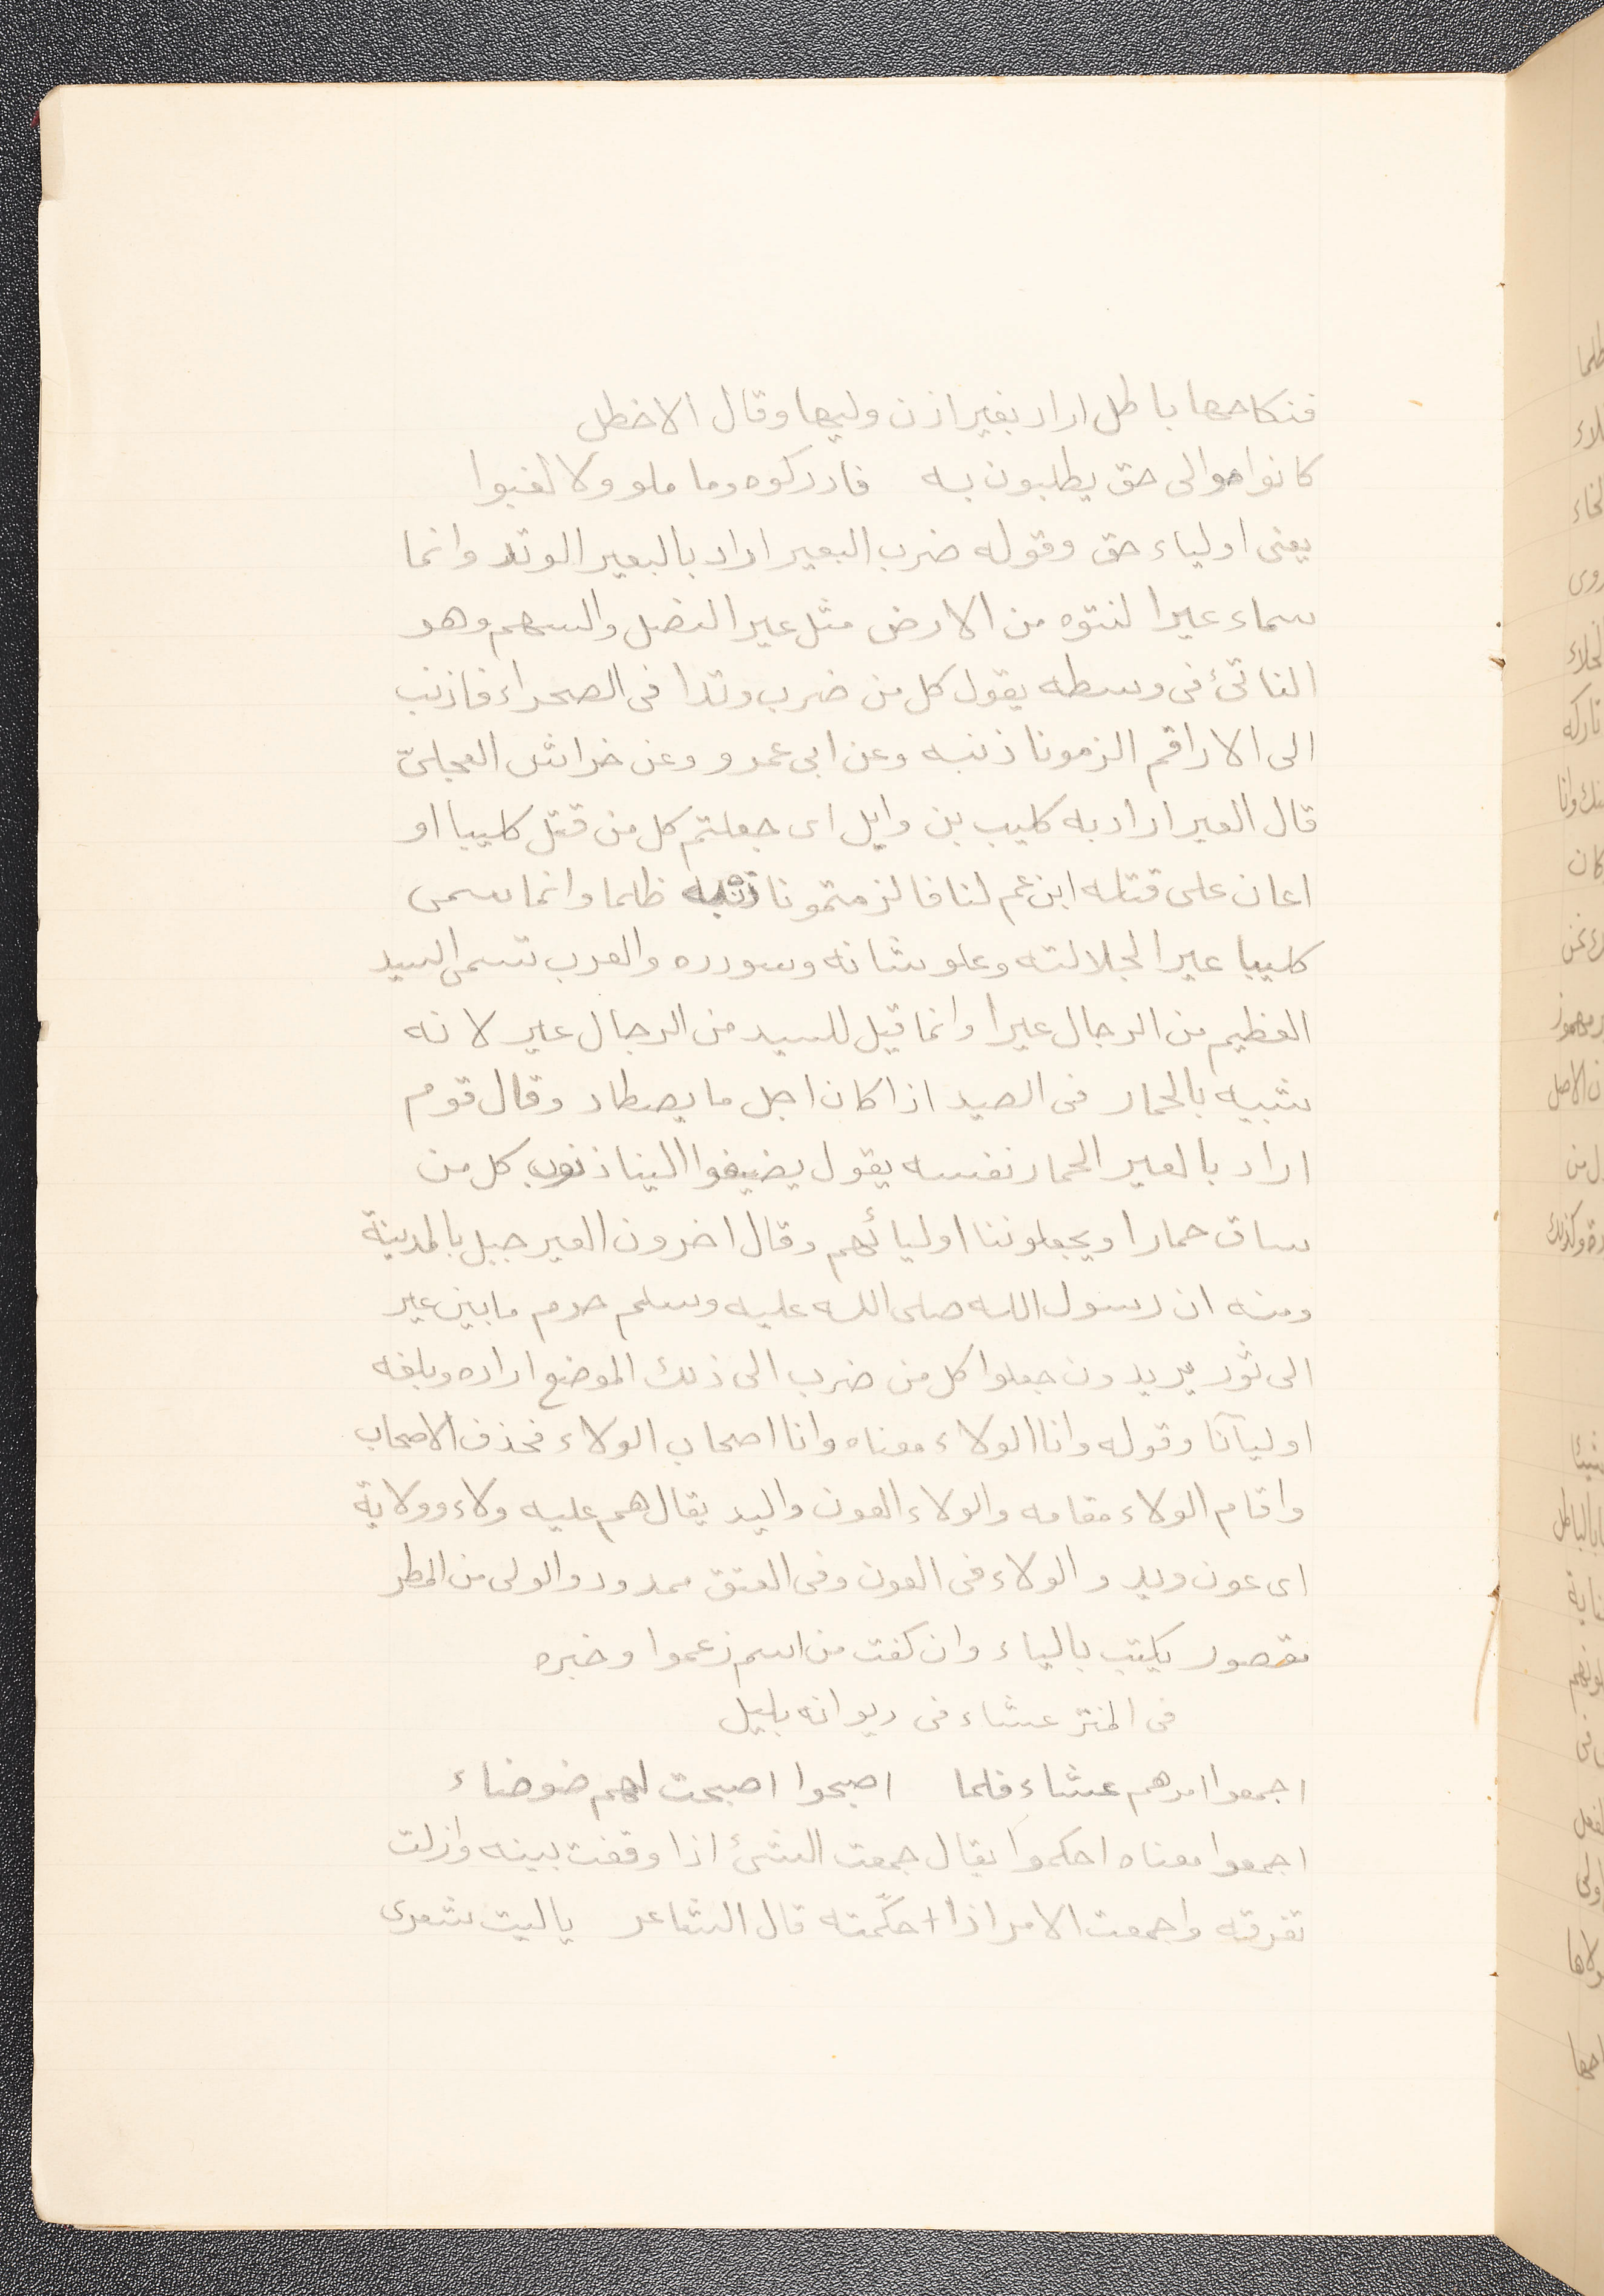 فنكاحها باطل اراد بغير اذن وليها وقال الاخطل
كانوا موالى حق يطلبون به فادركوه وما ملو ولا لغبوا
يعنى اولياء حق وقوله ضرب البعير اراد بالبعير الوتد وانما
سماء عيرا لنتوه من الارض مثل عير النصل والسهم وهو
الناتئ فى وسطه يقول كل من ضرب وتدا فى الصحراء فاذنب
الى الاراقم الزمونا ذنبه وعن ابى عمرو وعن خراش العجلىّ
قال العير اراد به كليب بن وايل اى جعلتم كل من قتل كليبا او
اعان على قتله ابن عم لنا فالزمتمونا ذنبه ظلما وانما سمى
كليبا عيرا لجلالته وعلو شانه وسودده والعرب تسمى السيد
العظيم من الرجال عيرا وانما قيل للسيد من الرجال عير لانه
شبيه بالحمار فى الصيد اذا كان اجل ما يصطاد وقال قوم
اراد بالعير الحمار نفسه يقول يضيفوا الينا ذنوب كل من
ساق حمارا ويجعلوننا اوليائهم وقال اخرون العير جبل بالمدينة
ومنه ان رسول الله صلى الله عليه وسلم حرم ما بين عير
الى ثور يريدون جعلوا كل من ضرب الى ذلك الموضع اراده وبلغه
اوليآنا وقوله وانا الولاء معناه وانا اصحاب الولاء فحذف الاصحاب
واقام الولاء مقامه والولاء العون واليد يقال هم عليه ولاء وولاية
اى عون ويد والولاء فى العون وفى العتق ممدود والولى من المطر
نقصور يكتب بالياء وان كفت من اسم زعموا وخبره
فى المنتر عشاء فى ديوانه بليل
اجمعوا امرهم عشاء فلما اصبحوا اصبحت لهم ضوضاء
اجمعوا معناه احكموا يقال جمعت الشئ اذا وقفت بينه وازلت
تفرقته واجمعت الامر اذا احكمّته قال الشاعر ياليت شعرى